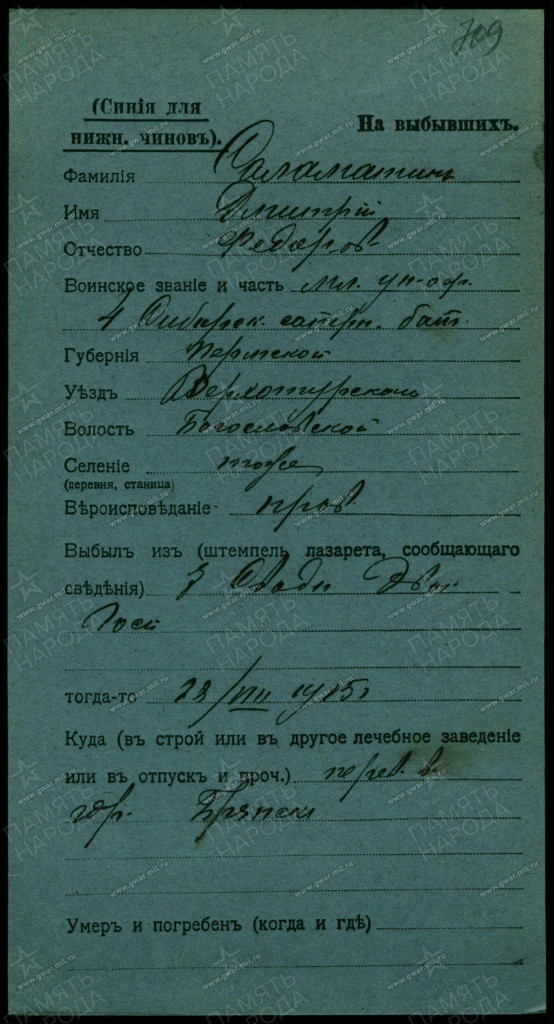 709
(Синія для
нижн. чиновъ).
На выбывшихъ.
Фамилія Саламатинъ
Имя Дмитрій
Отчество Федоров
Воинское званіе и часть мл. ун-оф.
4 Сибирск. сапрн. бат.
Губернія Пермской
Уѣздъ Верхотурскаго
Волость Богословской
Селеніе тоже
(деревня, станица)
Вѣроисповѣданіе прав.
Выбылъ изъ (штемпель лазарета, сообщающаго
свѣдѣнія) Эвак.
Госп
тогда-то 28/VIII 1915 г
Куда (въ строй или въ другое лечебное заведеніе
или въ отпускъ и проч.) перев. в.
гор. Брянск
Умеръ и погребенъ (когда и гдѣ)
ПАМЯТЬ НАРОДА
www.gwar.mil.ru